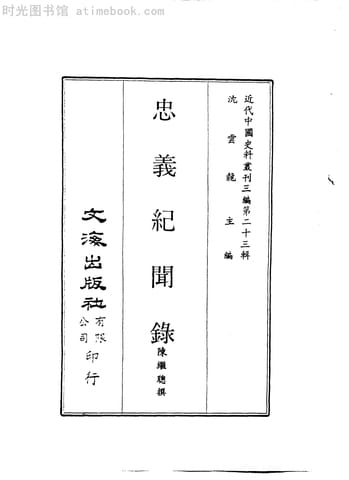 时光图书馆 atimebook.com
近代中國史料叢刊三編第二十三輯
沈雲龍主編
忠義紀聞錄
陳繼聰撰
文海出版社
有限公司
印行